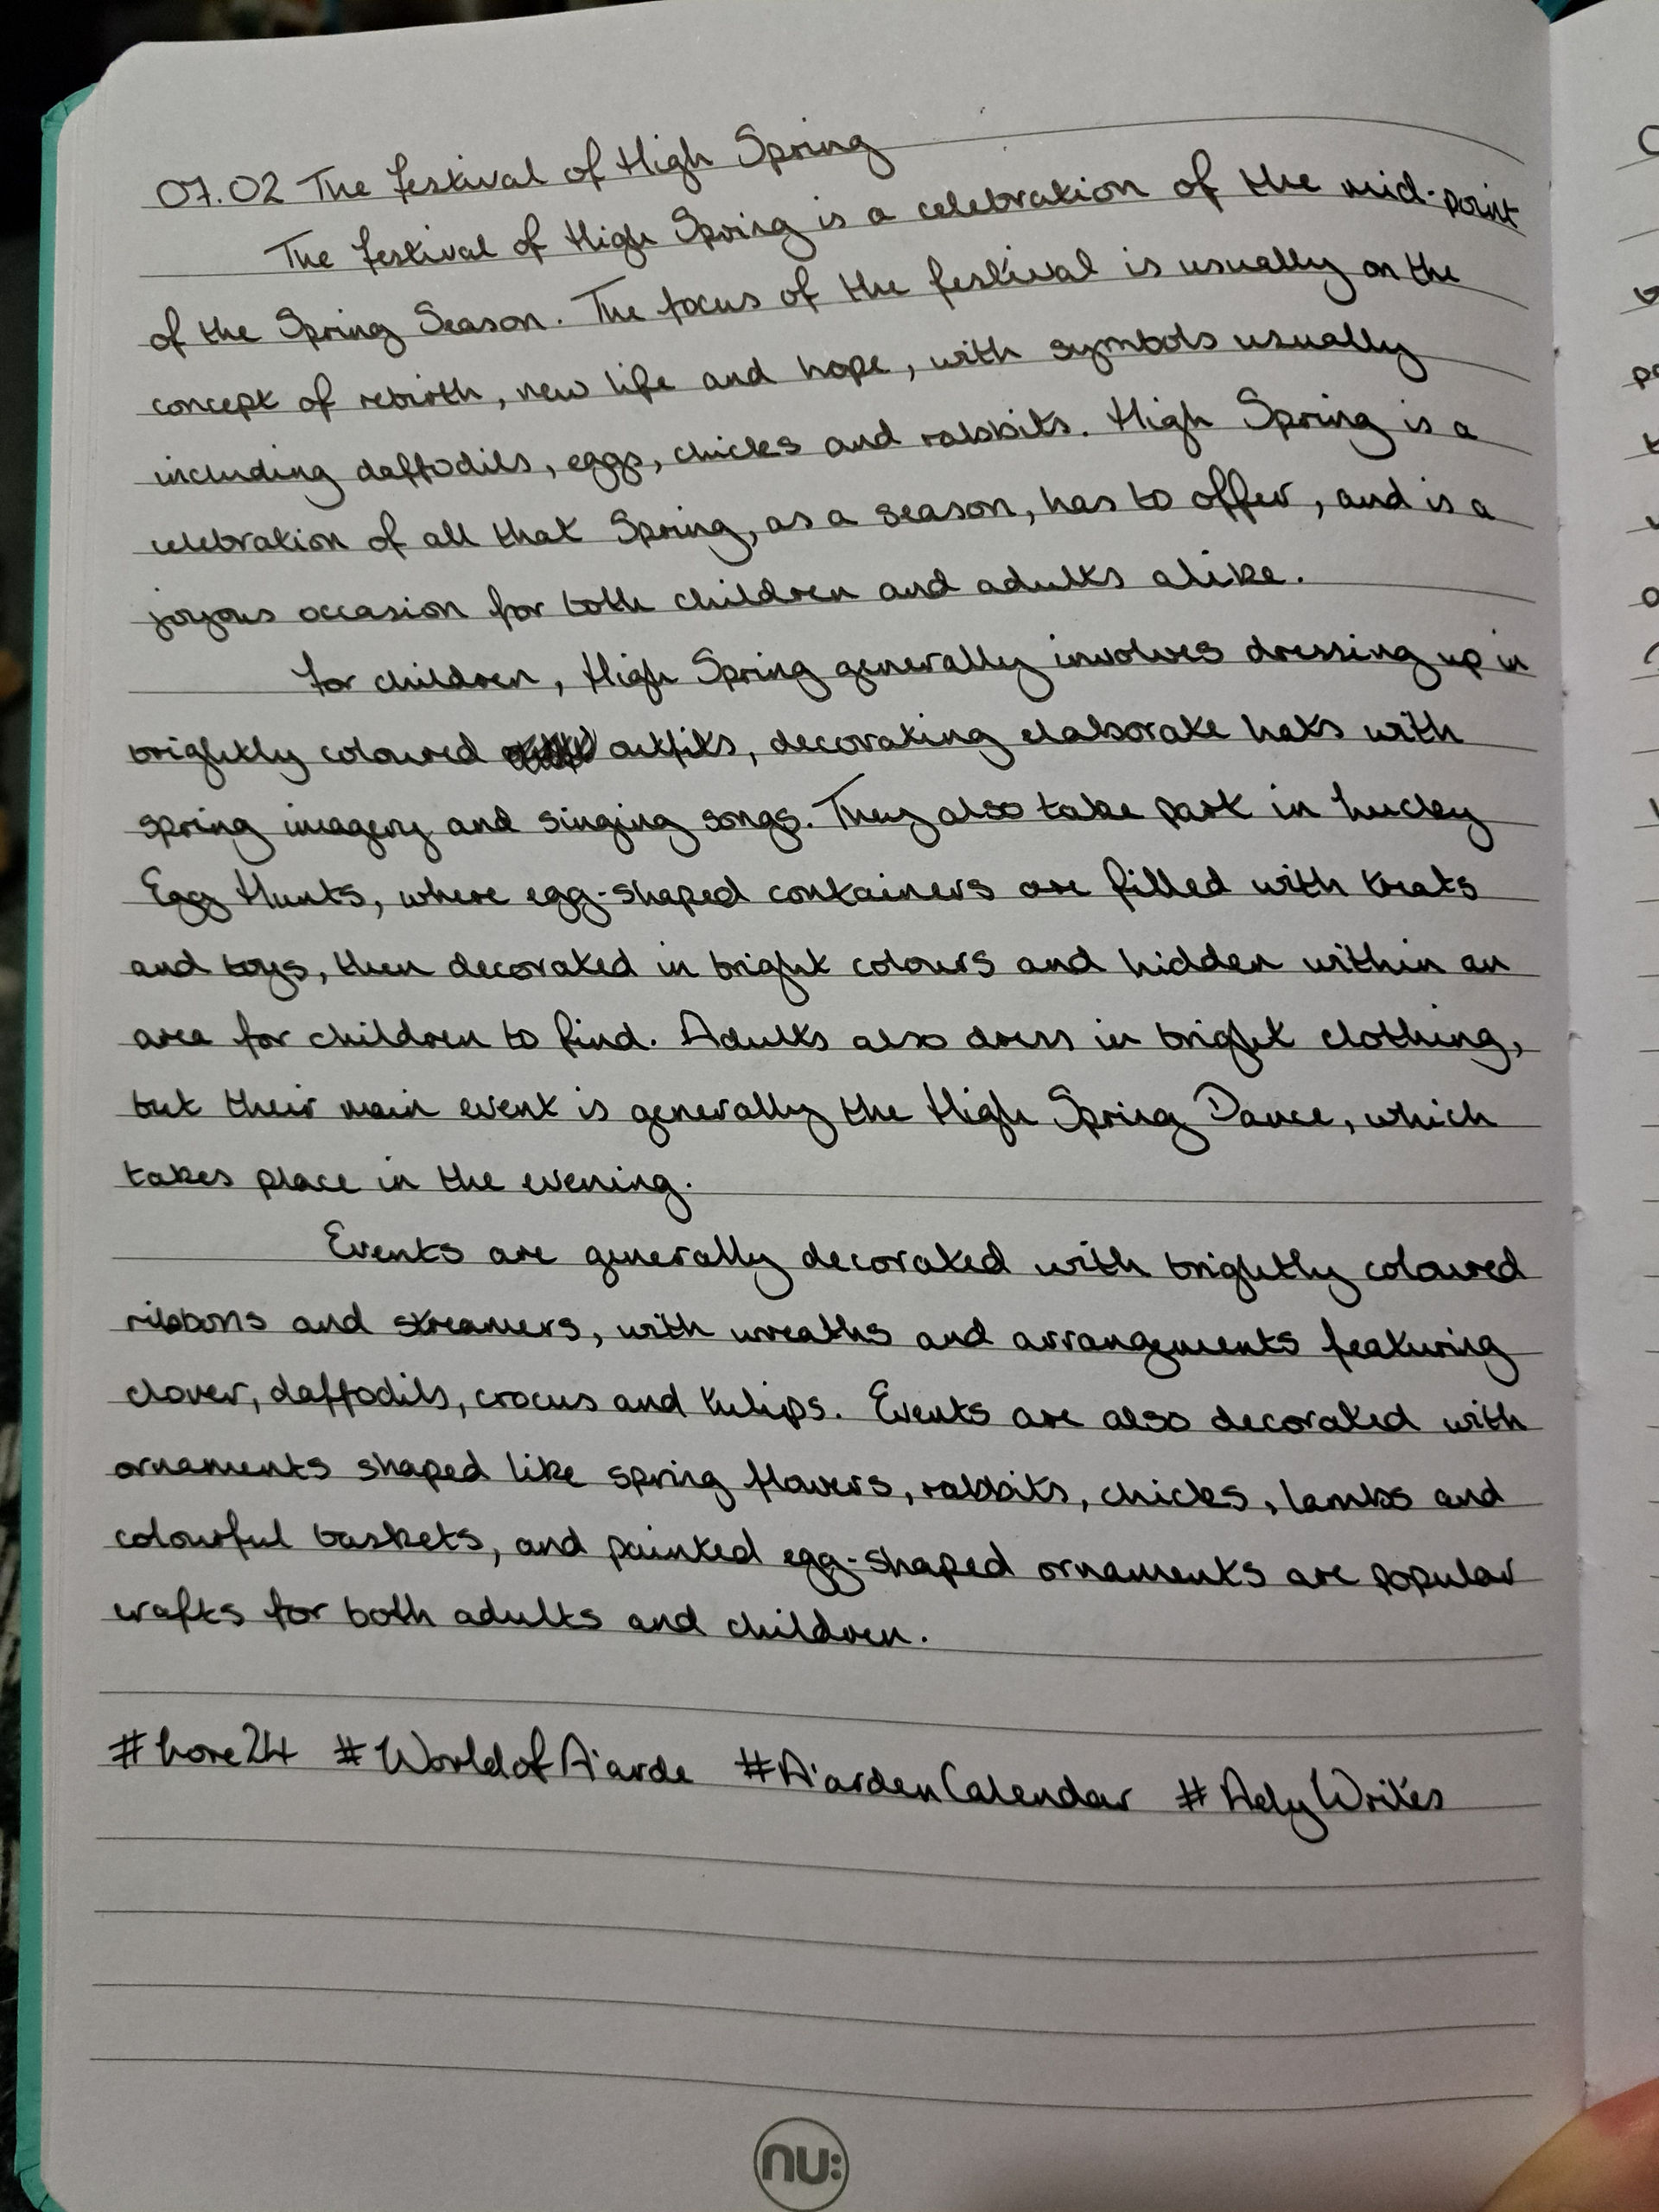 07.02 The Festival of High Spring
The Festival of High Spring is a celebration of the mid-point
of the Spring Season. The focus of the festival is usually on the
concept of rebirth, new life and hope, with symbols usually
including daffodils, eggs, chicks and rabbits. High Spring is a
celebration of all that Spring, as a season, has to offer, and is a
joyous occasion for both children and adults alike.
For children, High Spring generally involves dressing up in
brightly coloured outfits, decorating elaborate hats with
spring imagery and singing songs. They also take part in Lucky
Egg Hunts, where egg-shaped containers are filled with treats
and toys, then decorated in bright colours and hidden within an
area for children to find. Adults also dress in bright clothing,
but their main event is generally the High Spring Dance, which
takes place in the evening.
Events are generally decorated with brightly coloured
ribbons and streamers, with wreaths and arrangements featuring
clover, daffodils, crocus and tulips. Events are also decorated with
ornaments shaped like spring flowers, rabbits, chicks, lambs and
colourful baskets, and painted egg-shaped ornaments are popular
crafts for both adults and children.
#Lore24 #WorldofA'arde #A'ardenCalendar #AelyWrites
nu: